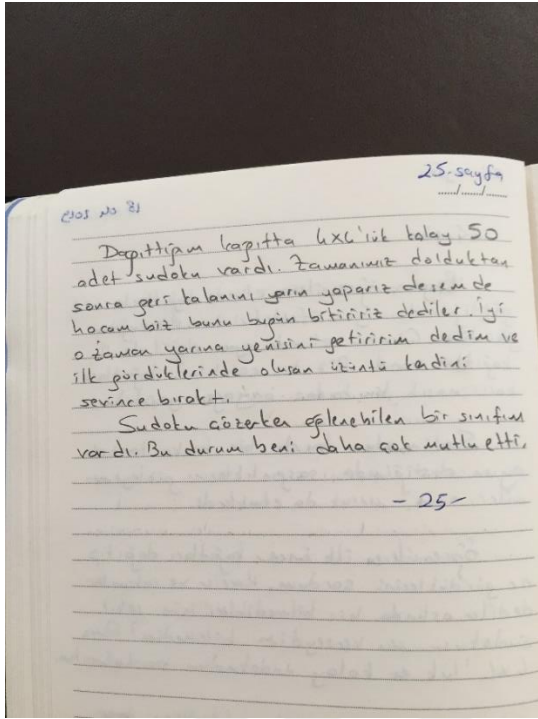 25.sayfa
Dağıttığım kağıtta 4x4'lük kolay 50
adet sudoku vardı. Zamanımız dolduktan
sonra geri kalanını yarın yaparız desem de
hocam biz bunu bugün bitiririz dediler. İyi
o zaman yarına yenisini getiririm dedim ve
ilk gördüklerinde oluşan üzüntü kendini
sevince bıraktı.
Sudoku çözerken eğlenebilen bir sınıfım
vardı. Bu durum beni daha çok mutlu etti.
- 25 -